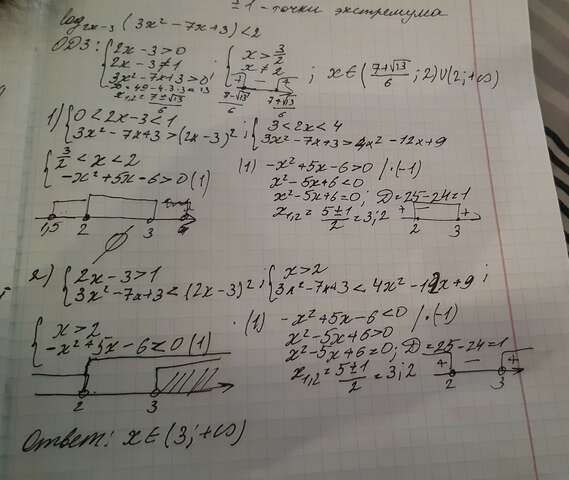 ±1 - точки экстремума
log₂ₓ₋₃ (3x² - 7x + 3) < 2
ОДЗ: { 2x - 3 > 0 ; { x > 3/2
2x - 3 ≠ 1 x ≠ 2 ; x ∈ ((7+√13)/6 ; 2) ∪ (2; +∞)
3x² - 7x + 3 > 0
D = 49 - 4·3·3 = 13 + − +
x₁,₂ = (7 ± √13)/6 (7-√13)/6 (7+√13)/6
1) { 0 < 2x - 3 < 1 ; { 3 < 2x < 4
3x² - 7x + 3 > (2x - 3)² 3x² - 7x + 3 > 4x² - 12x + 9
{ 3/2 < x < 2 (1) -x² + 5x - 6 > 0 / ·(-1)
-x² + 5x - 6 > 0 (1) x² - 5x + 6 < 0
x² - 5x + 6 = 0; D = 25 - 24 = 1
x₁,₂ = (5 ± 1)/2 = 3; 2 + − +
1,5 2 3 2 3
∅
2) { 2x - 3 > 1 ; { x > 2 ;
3x² - 7x + 3 < (2x - 3)² 3x² - 7x + 3 < 4x² - 12x + 9
{ x > 2 (1) -x² + 5x - 6 < 0 / ·(-1)
-x² + 5x - 6 < 0 (1) x² - 5x + 6 > 0
x² - 5x + 6 = 0; D = 25 - 24 = 1
x₁,₂ = (5 ± 1)/2 = 3; 2 + − +
2 3 2 3
Ответ: x ∈ (3; +∞)